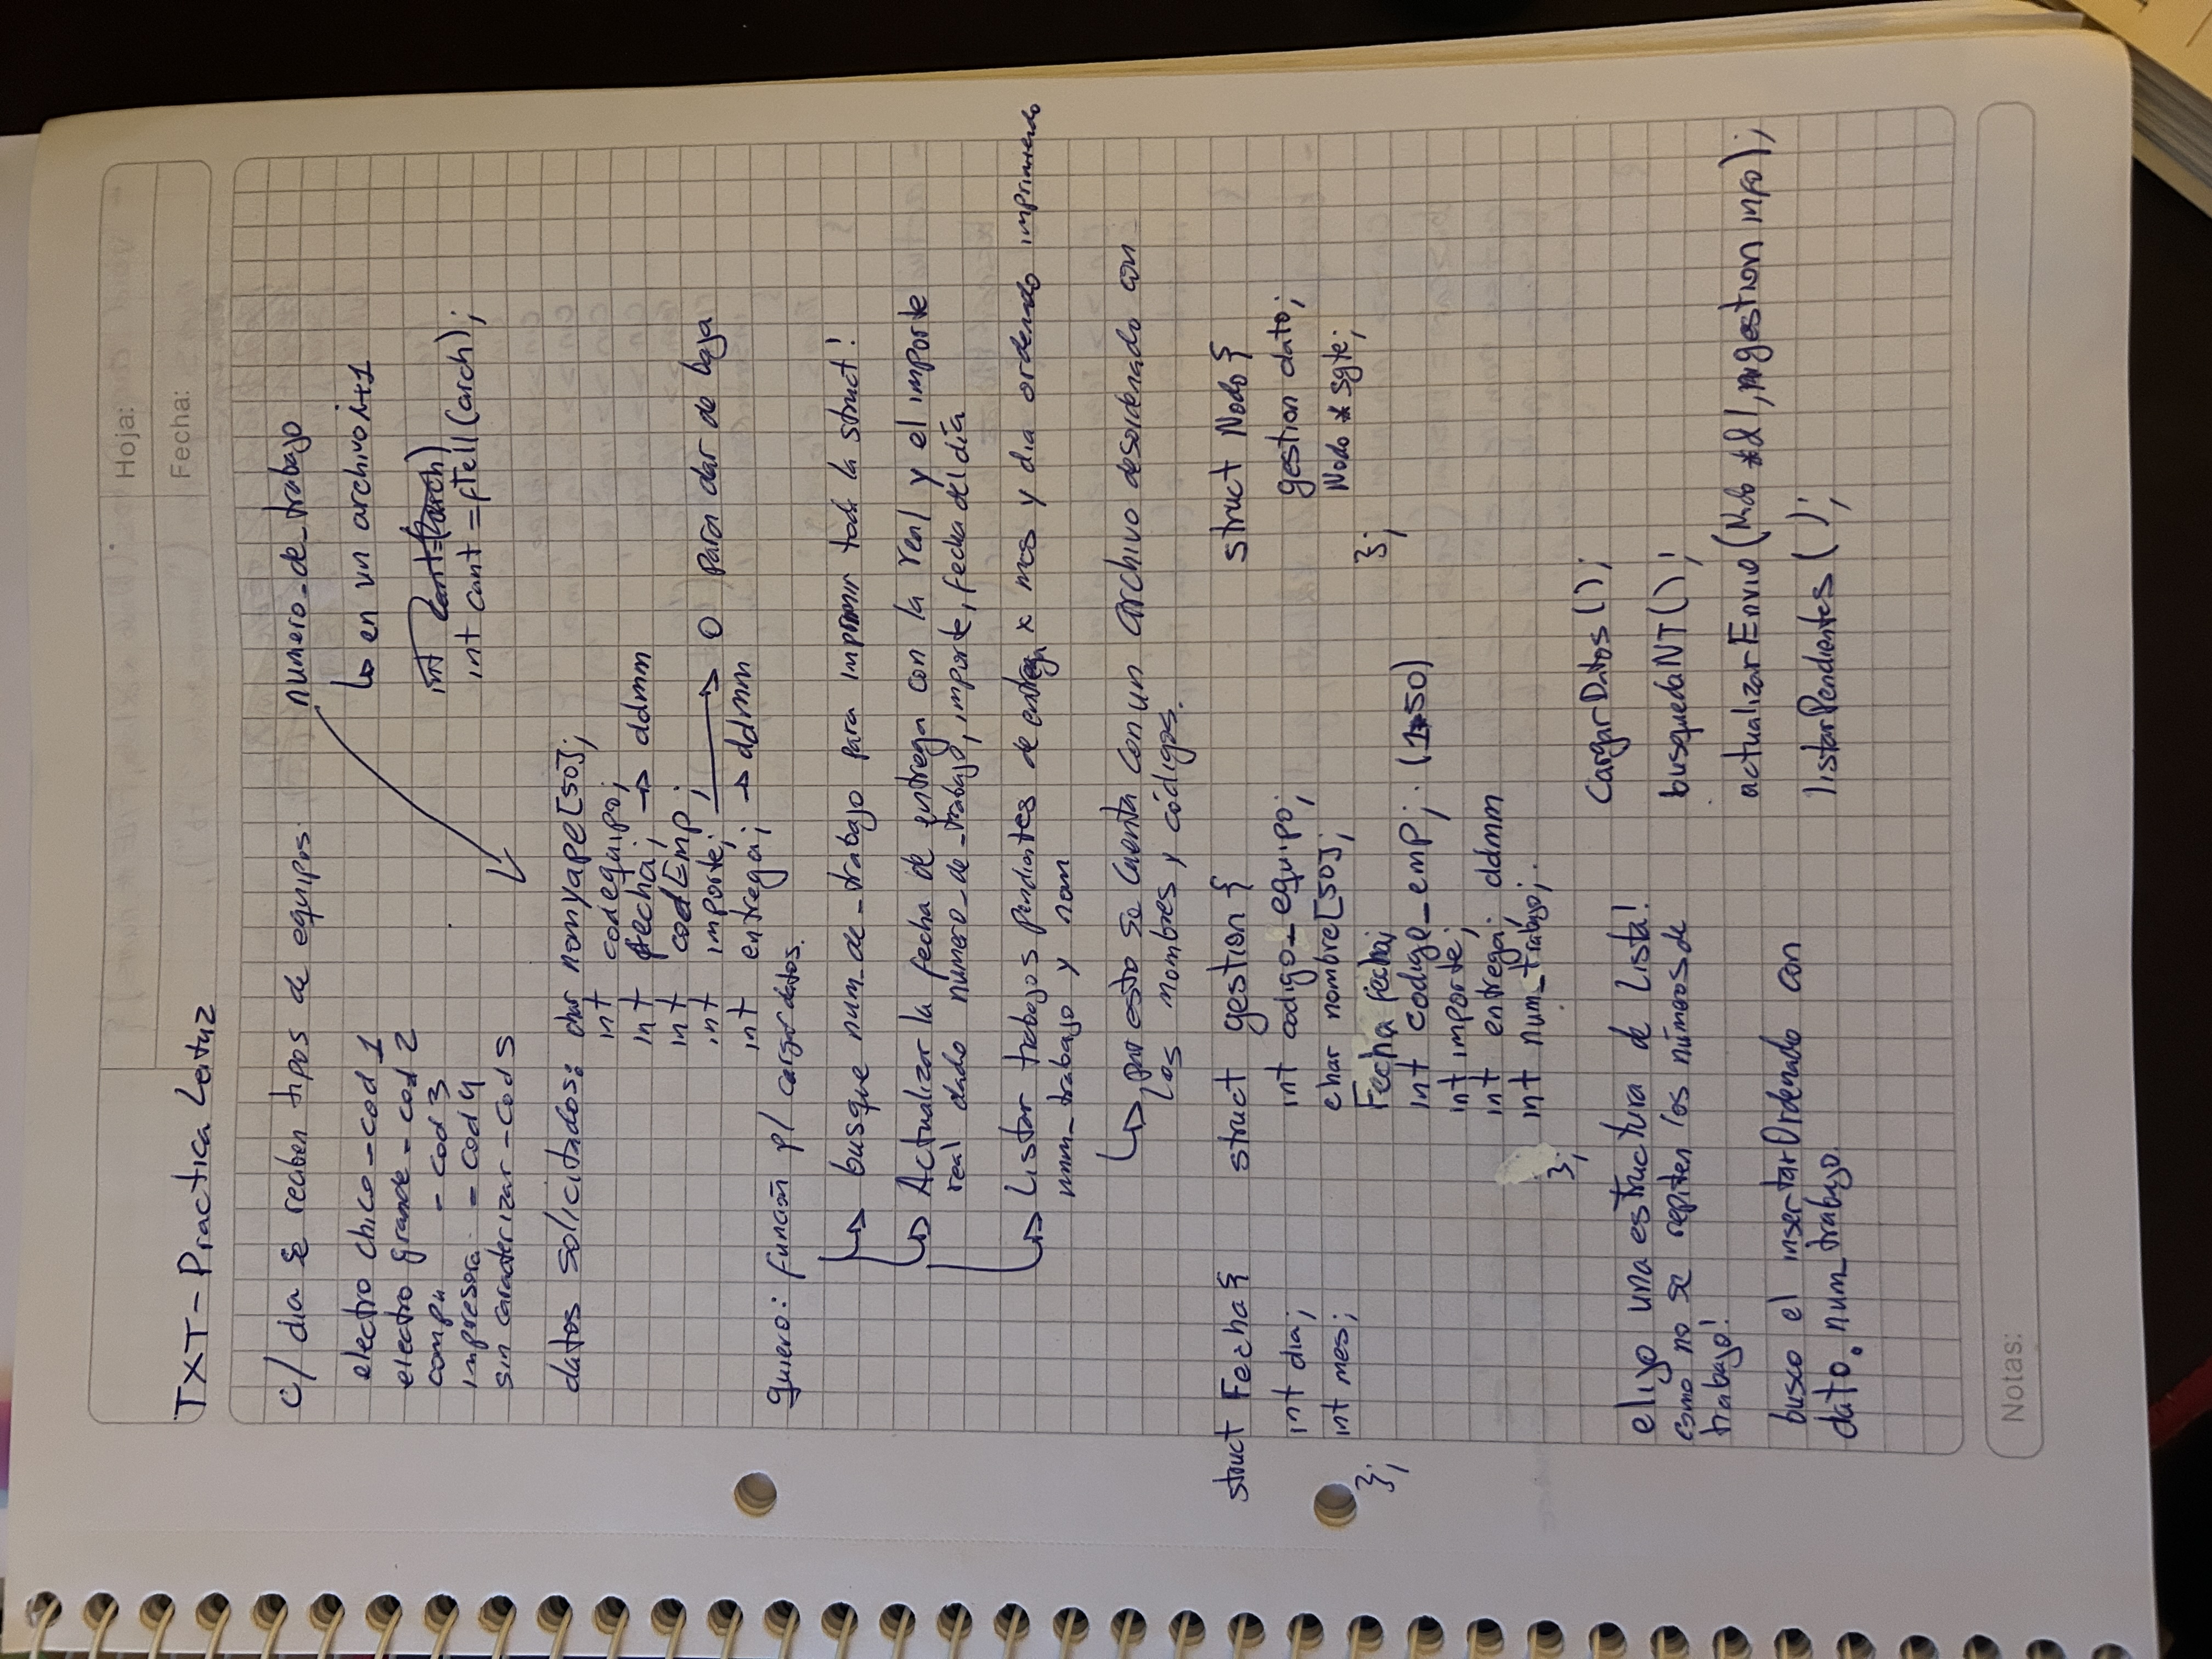 Hoja:
Fecha:
TXT-Practica Leituz
c/ dia se reciben tipos de equipos
electro chico - cod 1
electro grande - cod 2
compu - cod 3
impresora - cod 4
sin caracterizar - cod 5
numero_de_trabajo
↳ en un archivo i+1
int cant = fTell(arch);
datos solicitados: char nomyape[50];
int codequipo;
int fecha; → ddmm
int codEmp;
int importe; → 0 para dar de baja
int entrega; → ddmm
quiero: función p/ cargar datos.
↳ busque num_de_trabajo para imprimir toda la struct!
↳ Actualizar la fecha de entrega con la real y el importe
real dado numero_de_trabajo, importe, fecha del día
↳ Listar trabajos pendientes de entrega x mes y dia ordenado imprimiendo
num_trabajo y nom
↳ para esto se cuenta con un archivo desordenado con
los nombres y códigos.
struct Fecha{
int dia;
int mes;
};
struct gestion {
int codigo_equipo;
char nombre[50];
Fecha fecha;
int codigo_emp; (1-50)
int importe;
int entrega; ddmm
int num_trabajo;
};
struct Nodo {
gestion dato;
Nodo * sgte;
};
elijo una estructura de Lista!
como no se repiten los números de
trabajo!
busco el insertarOrdenado con
dato.num_trabajo
CargarDatos();
busquedaNT();
actualizarEnvio(Nodo *&l, gestion info);
listarPendientes( );
Notas: